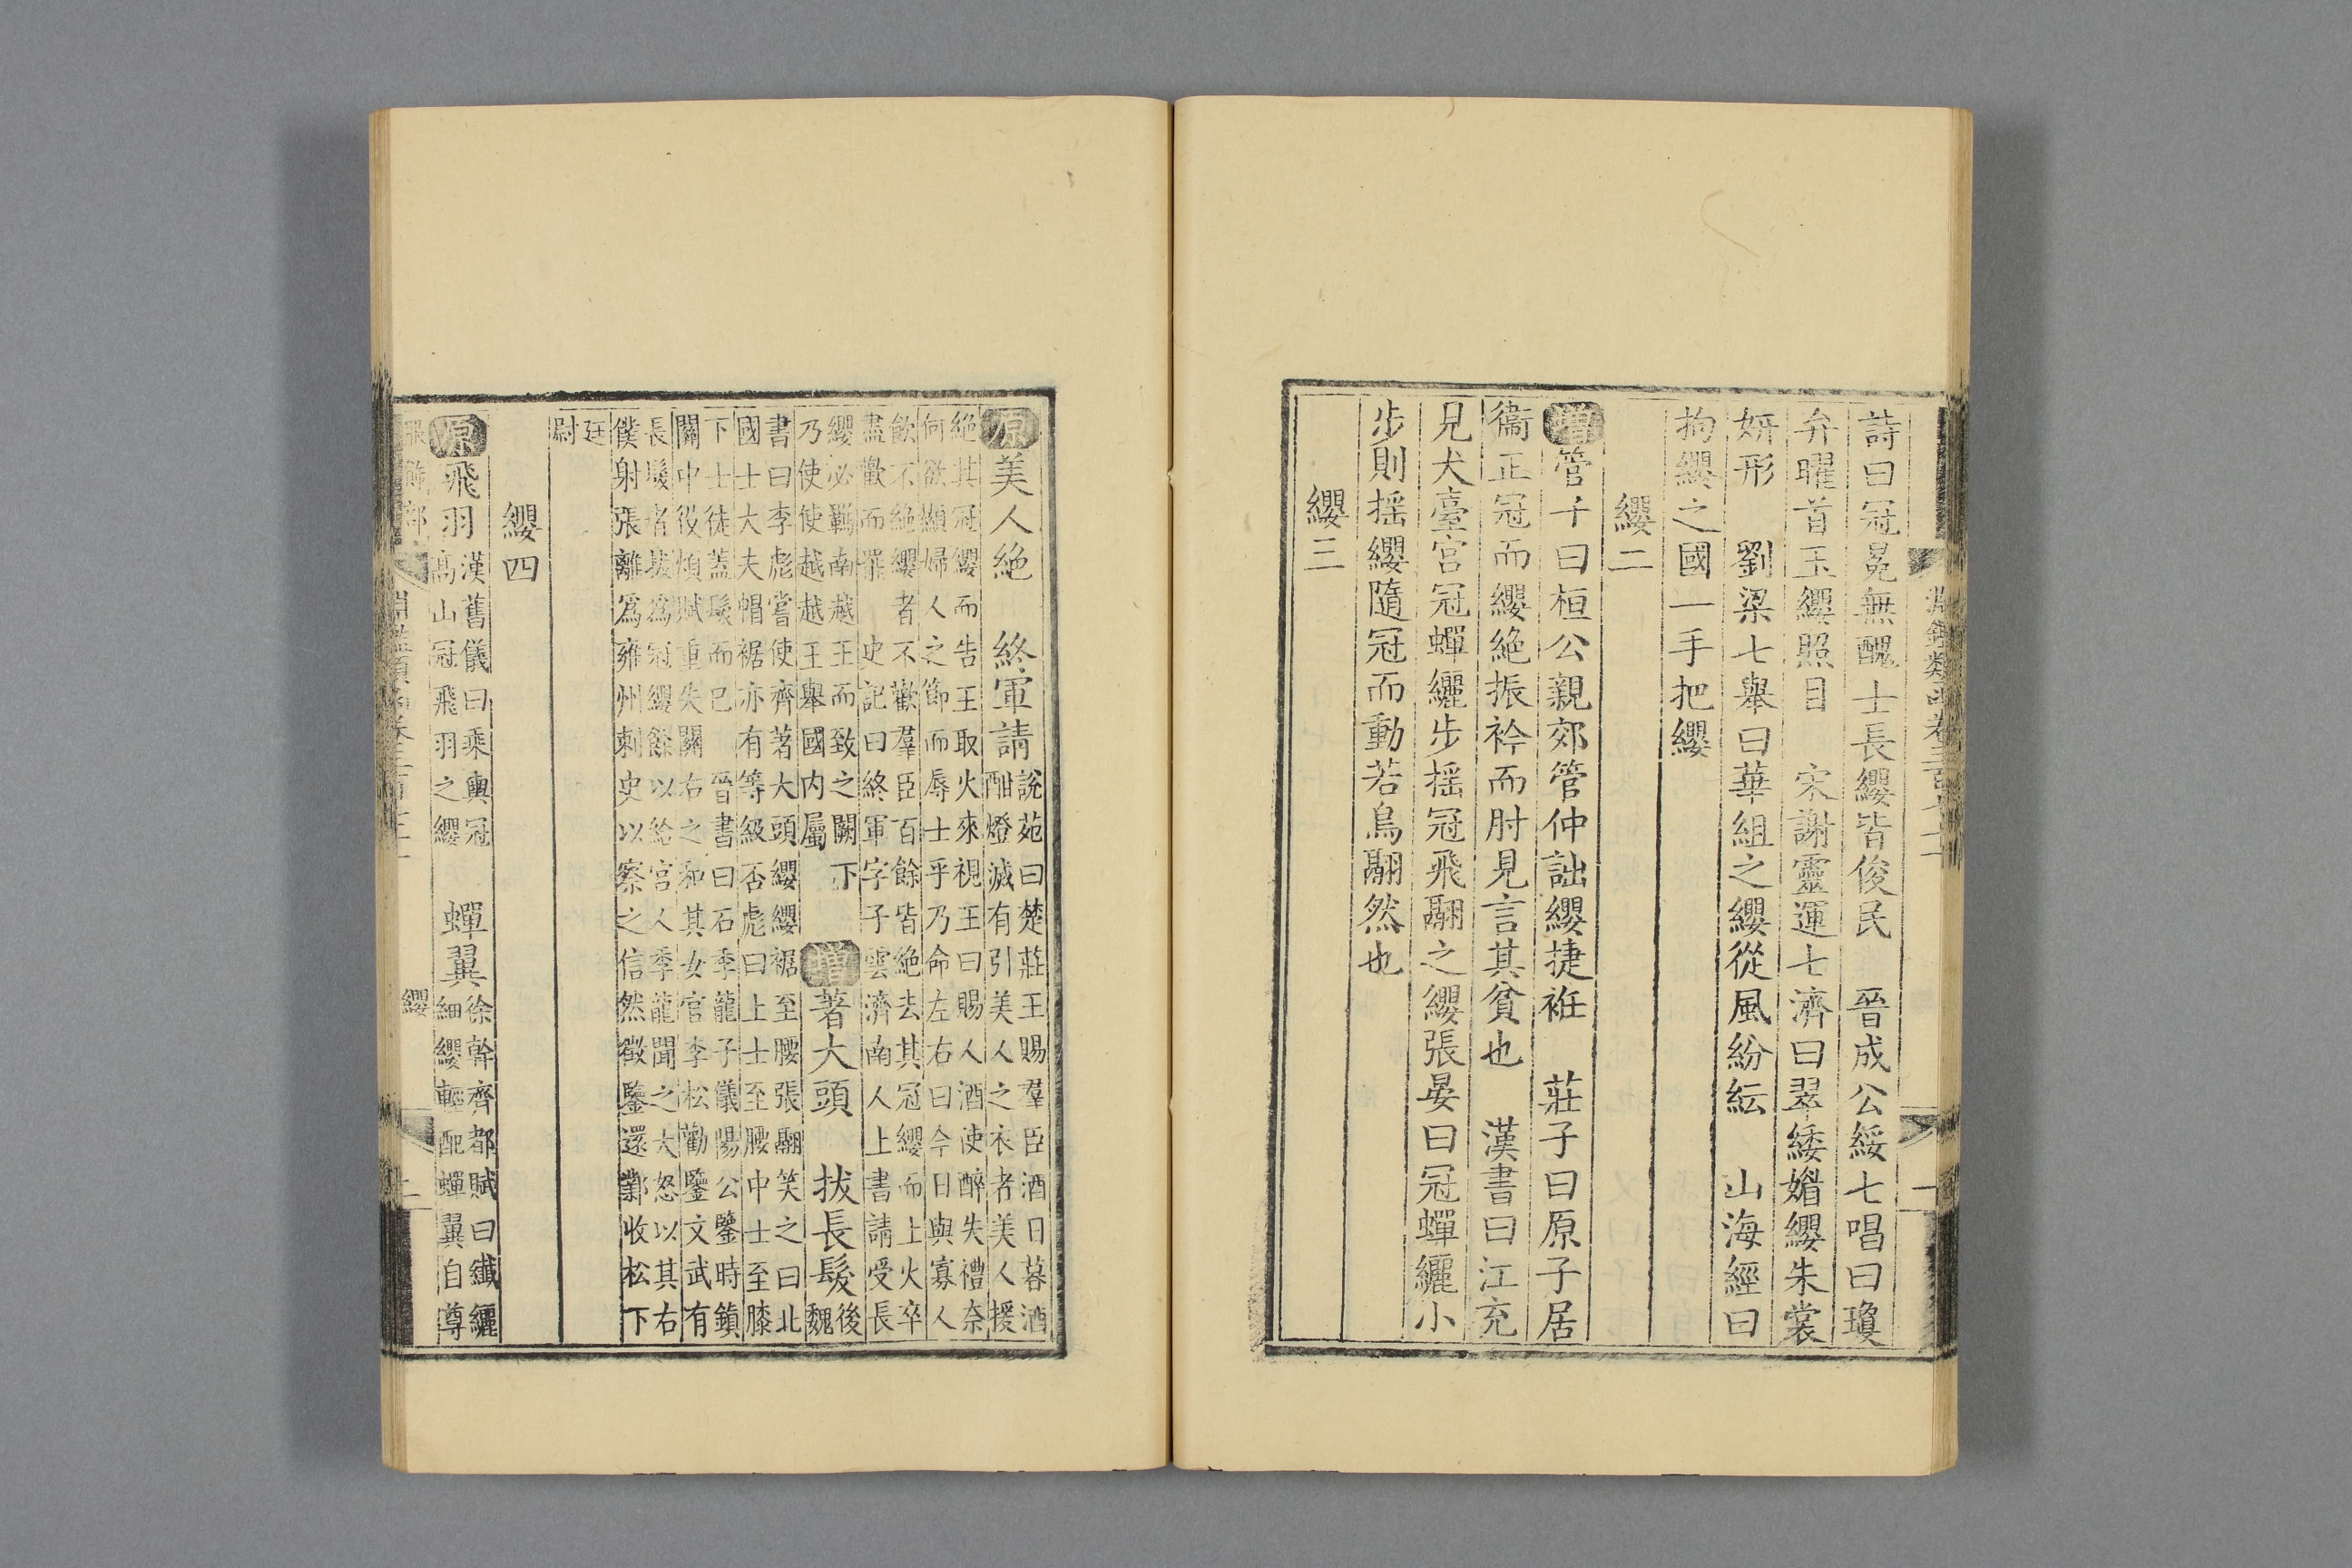 淵鑑類函卷三百七十一
詩曰冠冕無醜士長纓皆俊民　晉成公綏七唱曰瓊
弁曜首玉纓照目　宋謝靈運七濟曰翠緌媚纓朱裳
妍形　劉梁七舉曰華組之纓從風紛紜　山海經曰
拘纓之國一手把纓
纓二
增管子曰桓公親郊管仲詘纓捷袵　莊子曰原子居
衞正冠而纓絶振衿而肘見言其貧也　漢書曰江充
見犬臺宮冠蟬纚步摇冠飛翮之纓張晏曰冠蟬纚小
步則摇纓隨冠而動若鳥翮然也
纓三
原美人絶　終軍請
說苑曰楚莊王賜羣臣酒日暮酒
酣燈滅有引美人之衣者美人援
絶其冠纓而告王取火來視王曰賜人酒使醉失禮奈
何欲顯婦人之節而辱士乎乃命左右曰今日與寡人
飲不絶纓者不歡羣臣百餘皆絶去其冠纓而上火卒
盡歡而罷　史記曰終軍字子雲濟南人上書請受長
纓必羈南越王而致之闕下
乃使使越越王舉國内屬
增著大頭　拔長髮
後
魏
書曰李彪嘗使齊著大頭纓纓裾至腰張翮笑之曰北
國士大夫帽裾亦有等級否彪曰上士至腰中士至膝
下士徒蓋髮而已　晉書曰石季龍子儀陽公鑒時鎮
關中役煩賦重失關右之和其女官李松勸鑒文武有
長髮者拔爲冠纓餘以給宮人季龍聞之大怒以其右
僕射張離爲雍州刺史以察之信然徵鑒還鄴收松下
廷
尉
纓四
原飛羽
漢舊儀曰乘輿冠
高山冠飛羽之纓
蟬翼
徐幹齊都賦曰纖纚
細纓輕配蟬翼自尊
服飾部
淵鑑類函卷三百七十一
纓